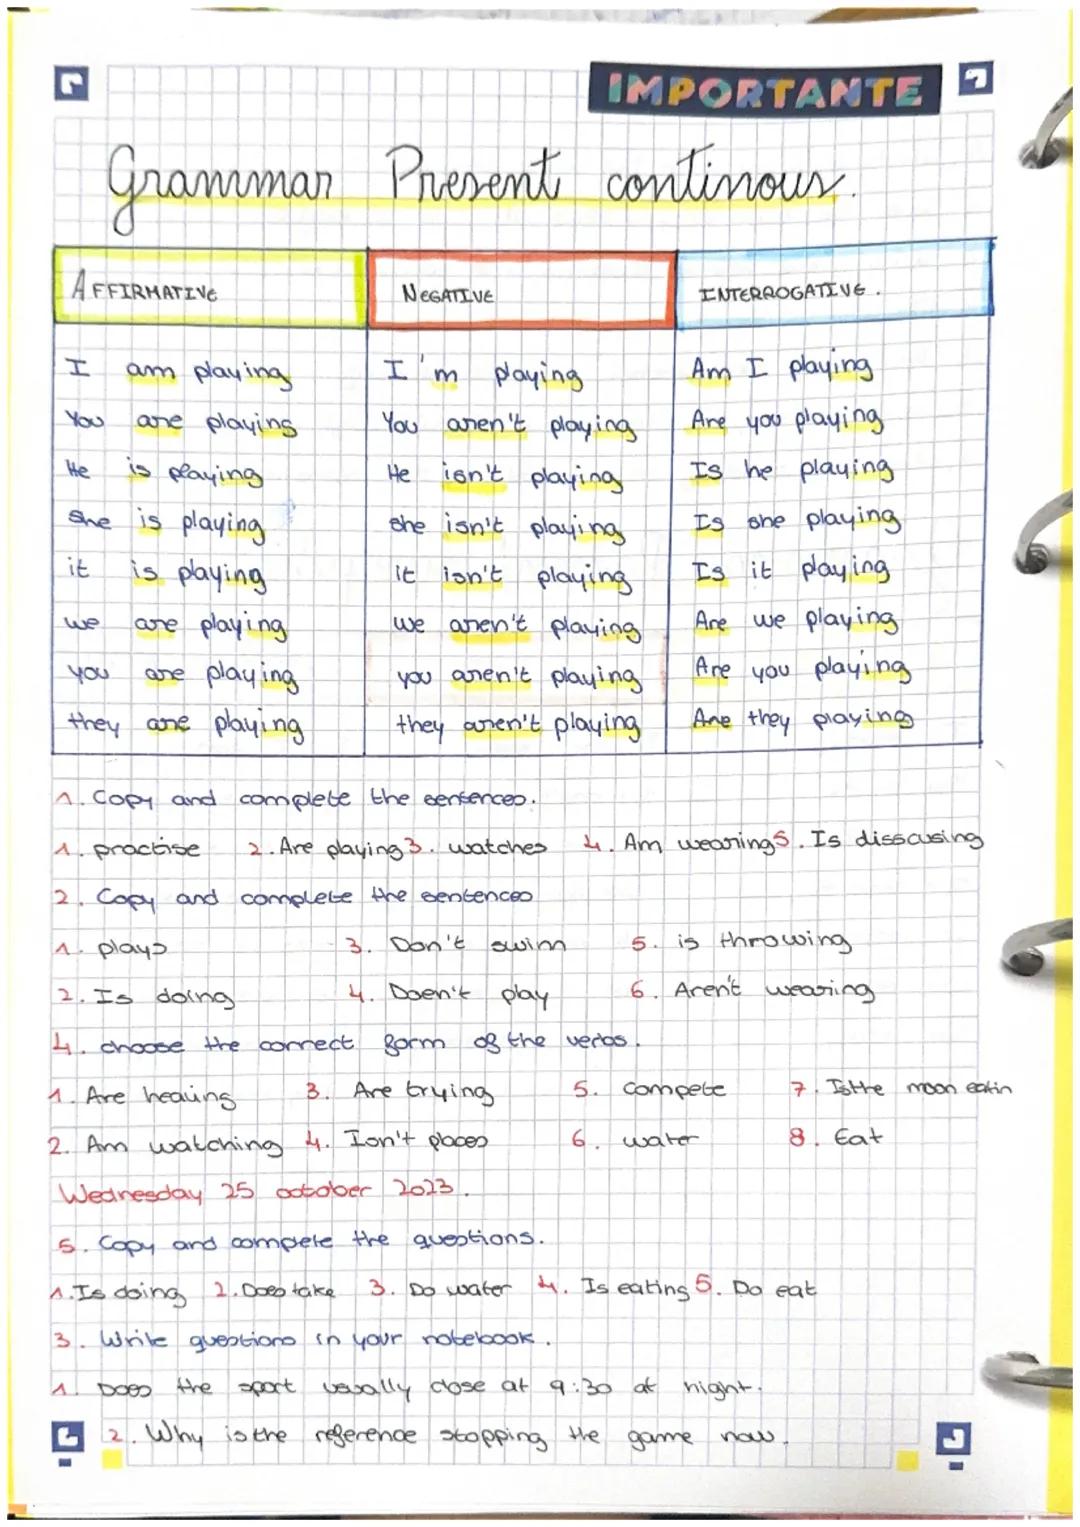 IMPORTANTE
Grammar Present continous.
AFFIRMATIVE NEGATIVE INTERROGATIVE.
I am playing I'm playing Am I playing
You are playing You aren't playing Are you playing
He is playing He isn't playing Is he playing
She is playing she isn't playing Is she playing
it is playing it isn't playing Is it playing
we are playing we aren't playing Are we playing
you are playing you aren't playing Are you playing
they are playing they aren't playing Are they playing
1. Copy and complete the sentences.
1. practise 2. Are playing 3. watches 4. Am wearing 5. Is disscusing
2. Copy and complete the sentences
1. plays 3. Don't swim 5. is throwing
2. Is doing 4. Doen't play 6. Aren't wearing
4. choose the correct form of the verbs.
1. Are heaiing 3. Are trying 5. Compete 7. Is the moon eatin
2. Am watching 4. Isn't places 6. water 8. Eat
Wednesday 25 october 2023.
5. Copy and compete the questions.
1. Is doing 2. Does take 3. Do water 4. Is eating 5. Do eat
3. Write questions in your notebook.
1. Does the sport usually close at 9:30 at night.
2. Why is the reference stopping the game now.